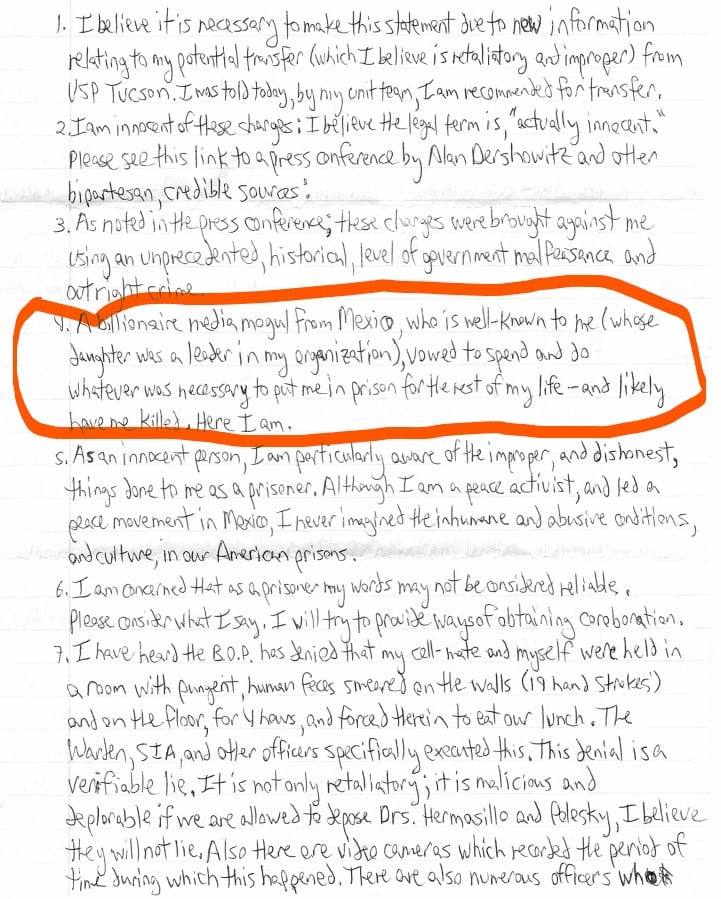 1. I believe it is necessary to make this statement due to new information
relating to my potential transfer (which I believe is retaliatory and improper) from
USP Tucson. I was told today, by my unit team, I am recommended for transfer.
2. I am innocent of these charges; I believe the legal term is, "actually innocent."
Please see this link to a press conference by Alan Dershowitz and other
bipartesan, credible sources:
3. As noted in the press conference, these charges were brought against me
using an unprecedented, historical, level of government malfeasance and
outright crime.
4. A billionaire media mogul from Mexico, who is well-known to me (whose
daughter was a leader in my organization), vowed to spend and do
whatever was necessary to put me in prison for the rest of my life - and likely
have me killed. Here I am.
5. As an innocent person, I am particularly aware of the improper, and dishonest,
things done to me as a prisoner. Although I am a peace activist, and led a
peace movement in Mexico, I never imagined the inhumane and abusive conditions,
and culture, in our American prisons.
6. I am concerned that as a prisoner my words may not be considered reliable.
Please consider what I say. I will try to provide ways of obtaining coroboration.
7. I have heard the B.O.P. has denied that my cell-mate and myself were held in
a room with pungent, human feces smeared on the walls (19 hand strokes)
and on the floor, for 4 hours, and forced therein to eat our lunch. The
Warden, SIA, and other officers specifically executed this. This denial is a
verifiable lie. It is not only retaliatory; it is malicious and
deplorable if we are allowed to depose Drs. Hermosillo and Polesky, I believe
they will not lie. Also there are video cameras which recorded the period of
time during which this happened. There are also numerous officers who